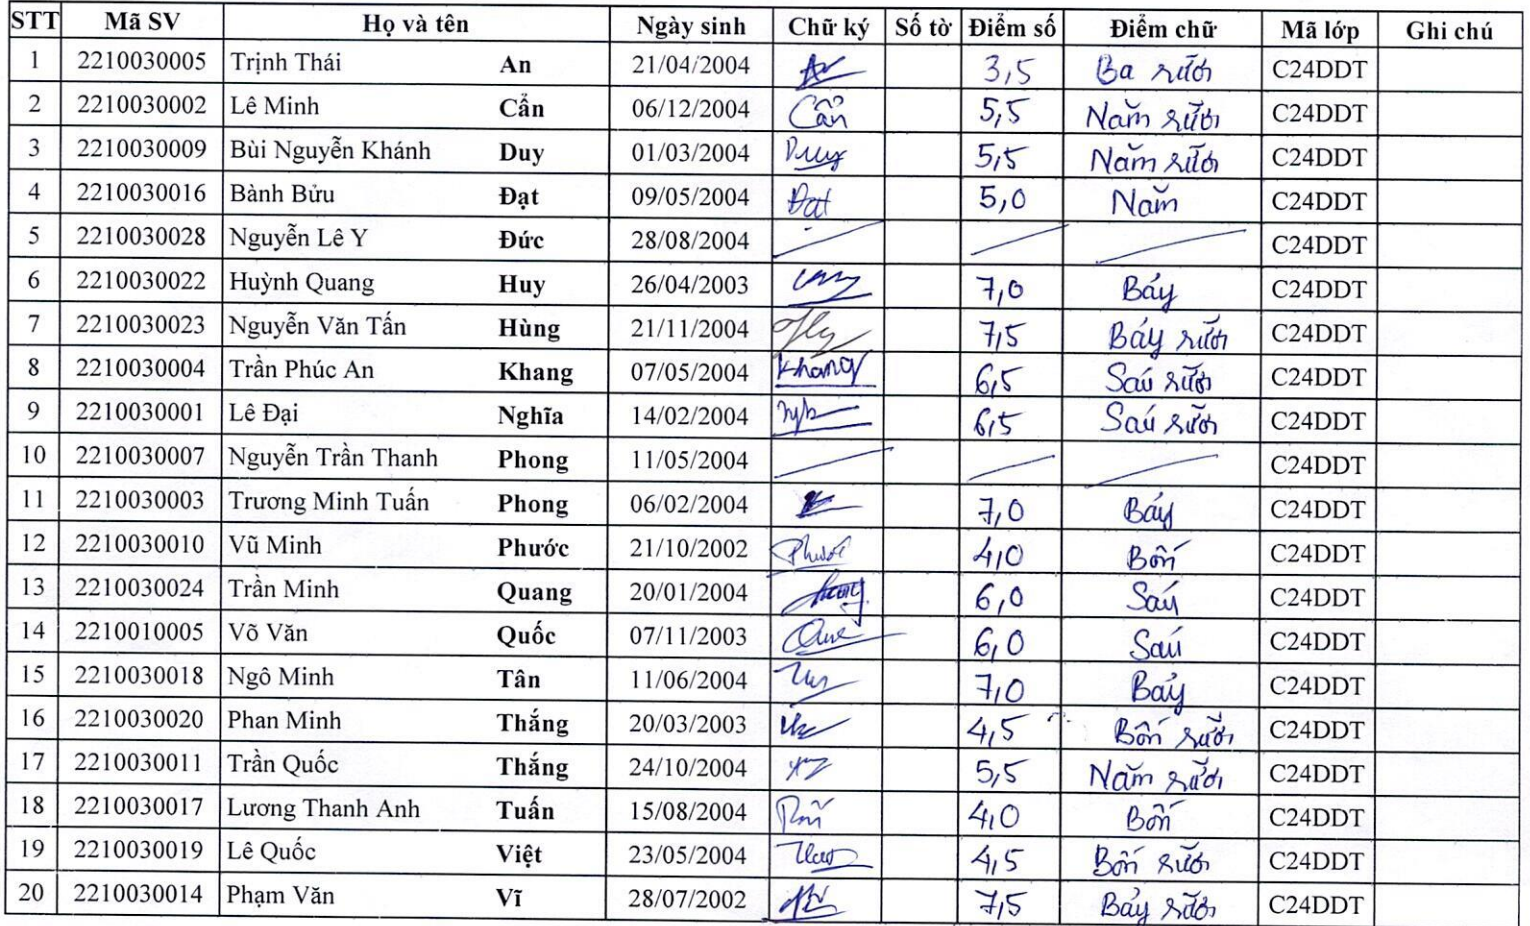 STT Mã SV Họ và tên Ngày sinh Chữ ký Số tờ Điểm số Điểm chữ Mã lớp Ghi chú
1 2210030005 Trịnh Thái An 21/04/2004 3,5 Ba rưỡi C24DDT
2 2210030002 Lê Minh Cẩn 06/12/2004 Cẩn 5,5 Năm rưỡi C24DDT
3 2210030009 Bùi Nguyễn Khánh Duy 01/03/2004 Duy 5,5 Năm rưỡi C24DDT
4 2210030016 Bành Bửu Đạt 09/05/2004 Đạt 5,0 Năm C24DDT
5 2210030028 Nguyễn Lê Y Đức 28/08/2004 C24DDT
6 2210030022 Huỳnh Quang Huy 26/04/2003 7,0 Bảy C24DDT
7 2210030023 Nguyễn Văn Tấn Hùng 21/11/2004 7,5 Bảy rưỡi C24DDT
8 2210030004 Trần Phúc An Khang 07/05/2004 Khang 6,5 Sáu rưỡi C24DDT
9 2210030001 Lê Đại Nghĩa 14/02/2004 6,5 Sáu rưỡi C24DDT
10 2210030007 Nguyễn Trần Thanh Phong 11/05/2004 C24DDT
11 2210030003 Trương Minh Tuấn Phong 06/02/2004 7,0 Bảy C24DDT
12 2210030010 Vũ Minh Phước 21/10/2002 Phước 4,0 Bốn C24DDT
13 2210030024 Trần Minh Quang 20/01/2004 6,0 Sáu C24DDT
14 2210010005 Võ Văn Quốc 07/11/2003 6,0 Sáu C24DDT
15 2210030018 Ngô Minh Tân 11/06/2004 7,0 Bảy C24DDT
16 2210030020 Phan Minh Thắng 20/03/2003 4,5 Bốn rưỡi C24DDT
17 2210030011 Trần Quốc Thắng 24/10/2004 5,5 Năm rưỡi C24DDT
18 2210030017 Lương Thanh Anh Tuấn 15/08/2004 4,0 Bốn C24DDT
19 2210030019 Lê Quốc Việt 23/05/2004 4,5 Bốn rưỡi C24DDT
20 2210030014 Phạm Văn Vĩ 28/07/2002 7,5 Bảy rưỡi C24DDT